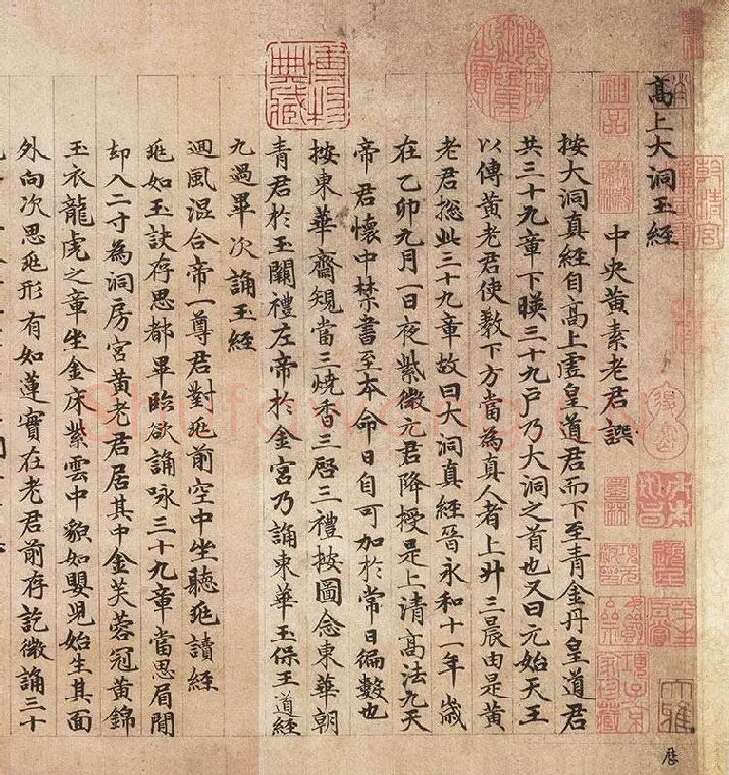 高上大洞玉經
中央黃素老君譔
按大洞真經自高上虛皇道君而下至青金丹皇道君
共三十九章下暎三十九戶乃大洞之首也又曰元始天王
以傳黃老君使教下方當為真人者上升三晨由是黃
老君捴此三十九章故曰大洞真經晉永和十一年歲
在乙卯九月一日夜紫微元君降授是上清高法九天
帝君懷中禁書至本命日自可加於常日徧數也
按東華齋規當三燒香三啓三禮按圖念東華朝
青君於玉闕禮左帝於金宮乃誦東華玉保王道經
九過畢次誦玉經
迴風混合帝一尊君對兆前空中坐聽兆讀經
兆如玉訣存思都畢臨欲誦咏三十九章當思眉間
却入二寸為洞房宮黃老君居其中金芙蓉冠黃錦
玉衣龍虎之章坐金床紫雲中貌如嬰兒始生其面
外向次思兆形有如蓮實在老君前存訖微誦三十
博物典藏
乾隆御覽之寶